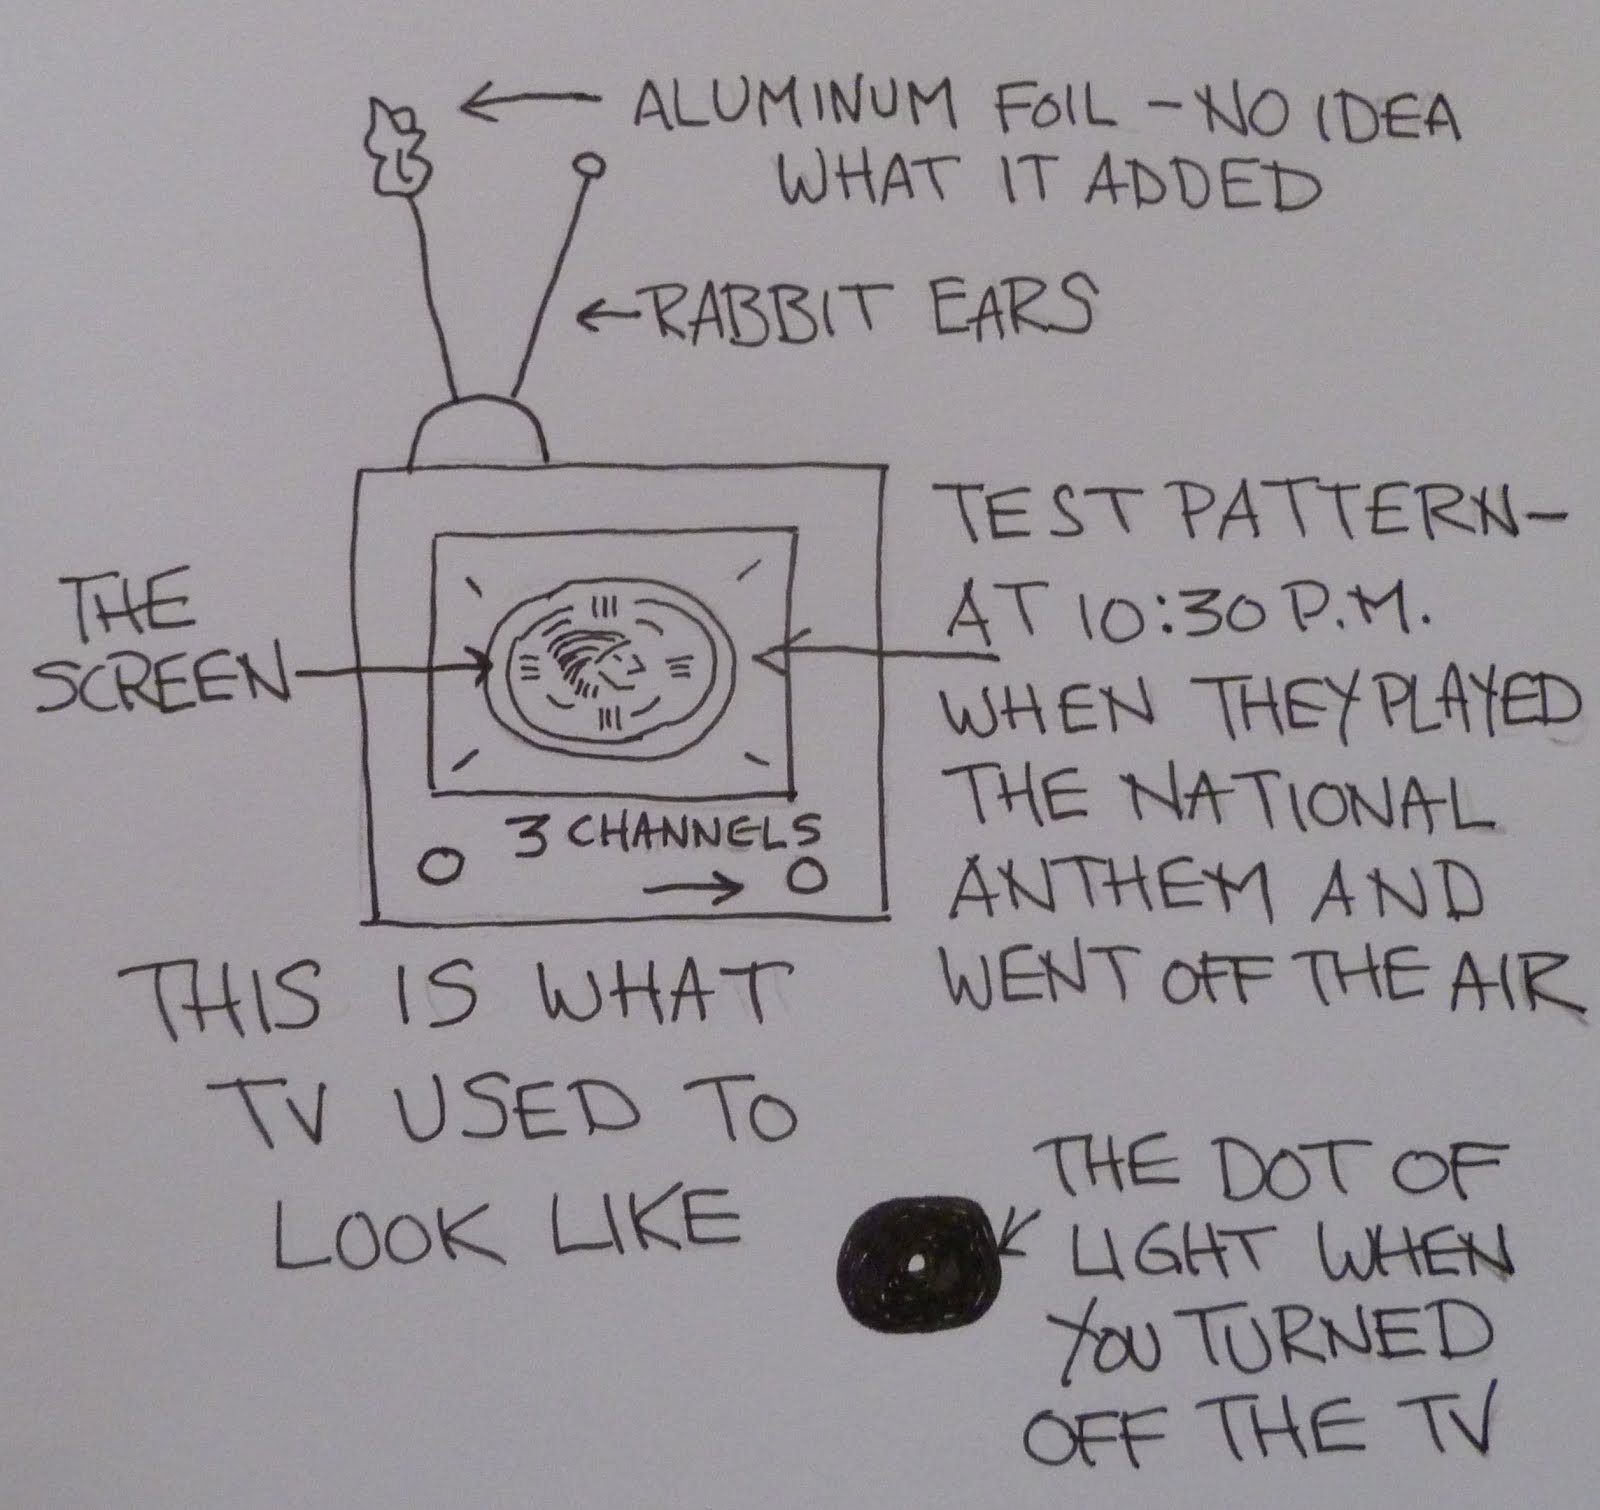 ALUMINUM FOIL - NO IDEA
WHAT IT ADDED
RABBIT EARS
THE
SCREEN
TEST PATTERN-
AT 10:30 P.M.
WHEN THEY PLAYED
THE NATIONAL
ANTHEM AND
WENT OFF THE AIR
3 CHANNELS
THIS IS WHAT
TV USED TO
LOOK LIKE
THE DOT OF
LIGHT WHEN
YOU TURNED
OFF THE TV